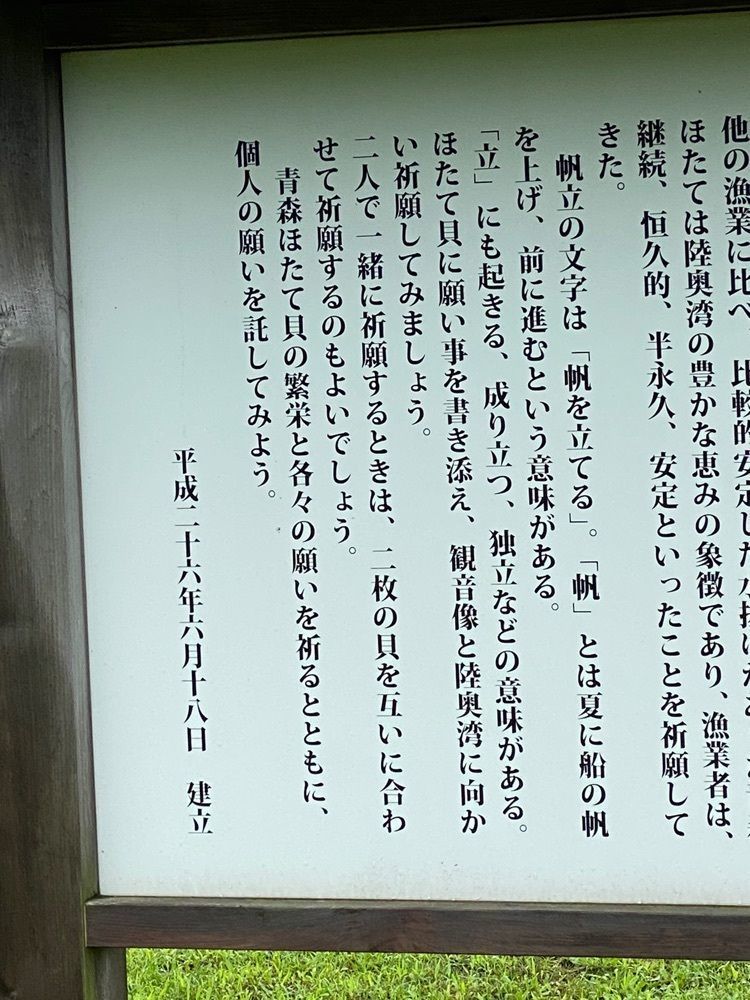 他の漁業に比べ、比較的安定した水揚げがあ
ほたては陸奥湾の豊かな恵みの象徴であり、漁業者は、
継続、恒久的、半永久、安定といったことを祈願して
きた。
帆立の文字は「帆を立てる」。「帆」とは夏に船の帆
を上げ、前に進むという意味がある。
「立」にも起きる、成り立つ、独立などの意味がある。
ほたて貝に願い事を書き添え、観音像と陸奥湾に向か
い祈願してみましょう。
二人で一緒に祈願するときは、二枚の貝を互いに合わ
せて祈願するのもよいでしょう。
青森ほたて貝の繁栄と各々の願いを祈るとともに、
個人の願いを託してみよう。
平成二十六年六月十八日 建立